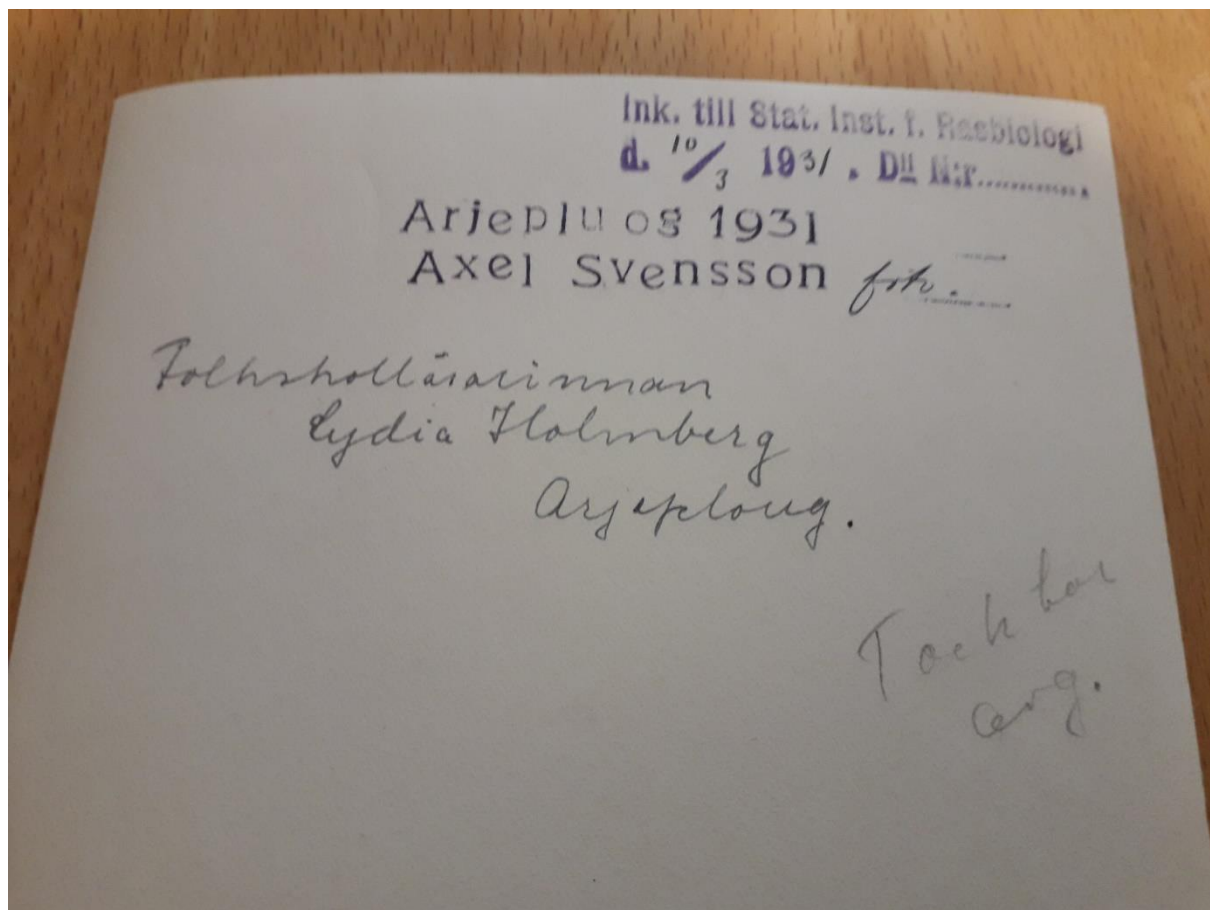 Ink. till Stat. Inst. f. Rasbiologi
d. 10/3 1931. D॥ N:r............
Arjepluog 1931
Axel Svensson
Folkskollärarinnan
Lydia Holmberg
Arjeploug.
Tack
avg.